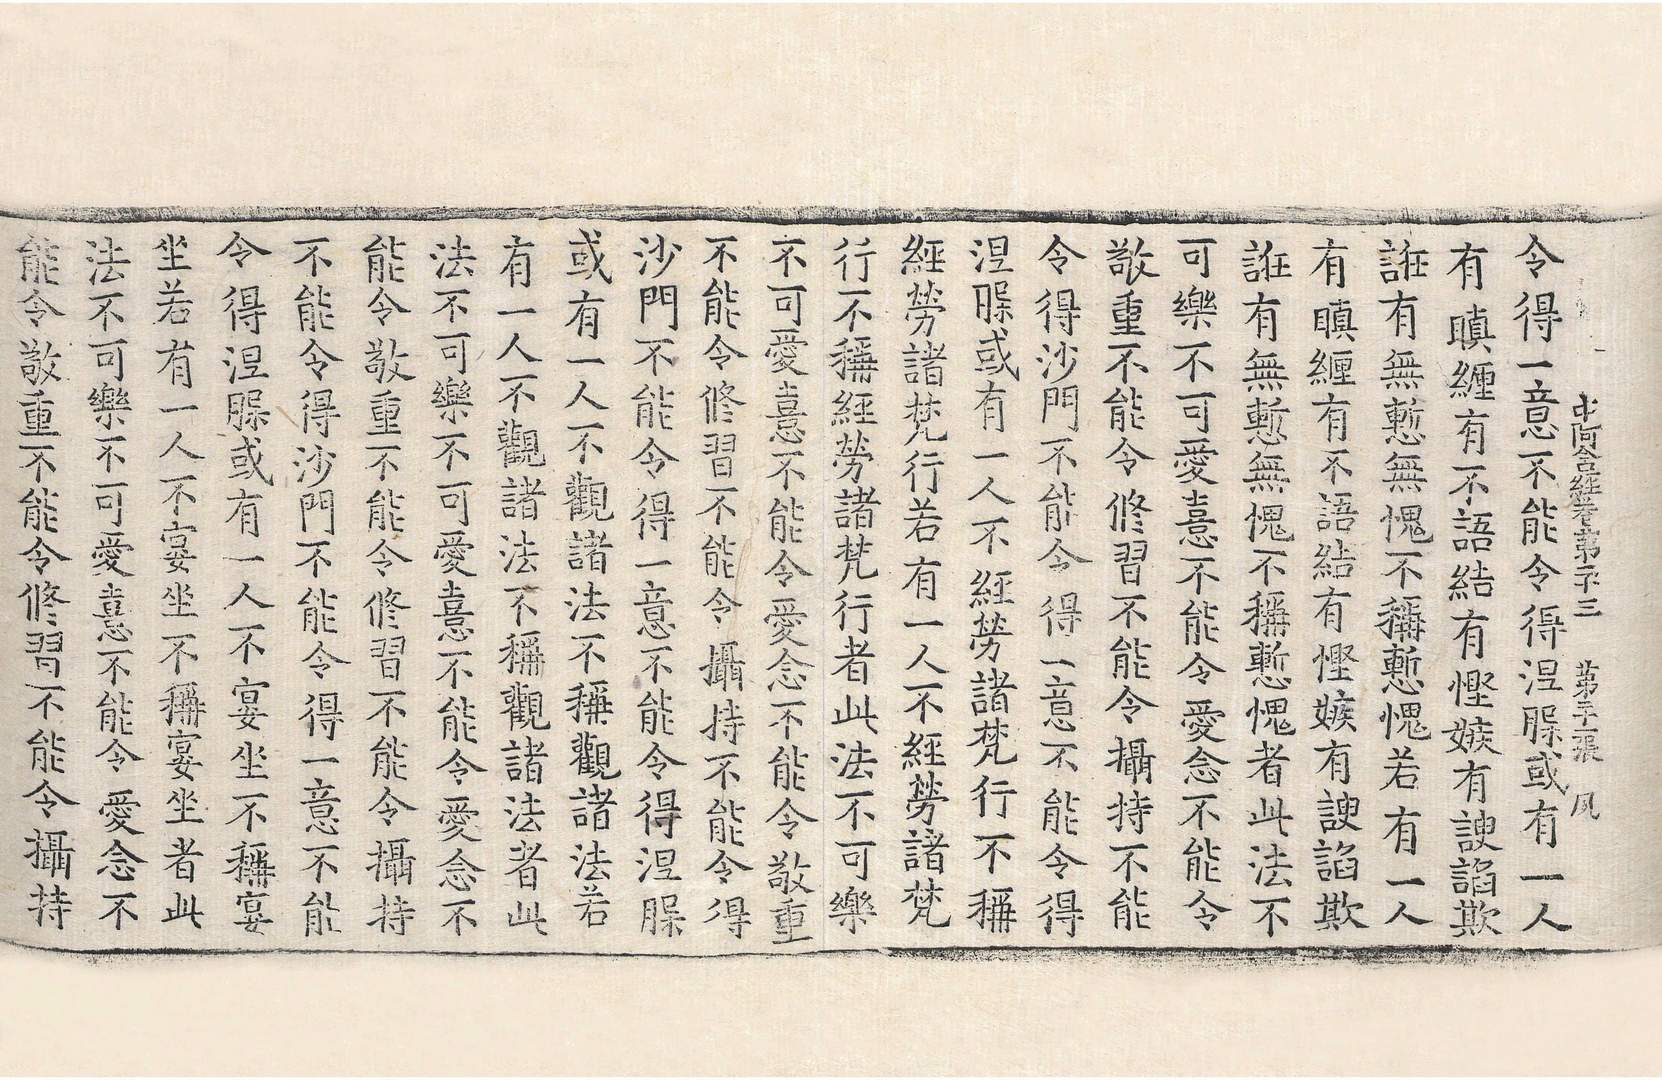 中阿含經卷第二十三　第十二張　夙
令得一意不能令得涅槃或有一人
有瞋纏有不語結有慳嫉有諛諂欺
誑有無慙無愧不稱慙愧若有一人
有瞋纏有不語結有慳嫉有諛諂欺
誑有無慙無愧不稱慙愧者此法不
可樂不可愛憙不能令愛念不能令
敬重不能令修習不能令攝持不能
令得沙門不能令得一意不能令得
涅槃或有一人不經勞諸梵行不稱
經勞諸梵行若有一人不經勞諸梵
行不稱經勞諸梵行者此法不可樂
不可愛憙不能令愛念不能令敬重
不能令修習不能令攝持不能令得
沙門不能令得一意不能令得涅槃
或有一人不觀諸法不稱觀諸法若
有一人不觀諸法不稱觀諸法者此
法不可樂不可愛憙不能令愛念不
能令敬重不能令修習不能令攝持
不能令得沙門不能令得一意不能
令得涅槃或有一人不宴坐不稱宴
坐若有一人不宴坐不稱宴坐者此
法不可樂不可愛憙不能令愛念不
能令敬重不能令修習不能令攝持